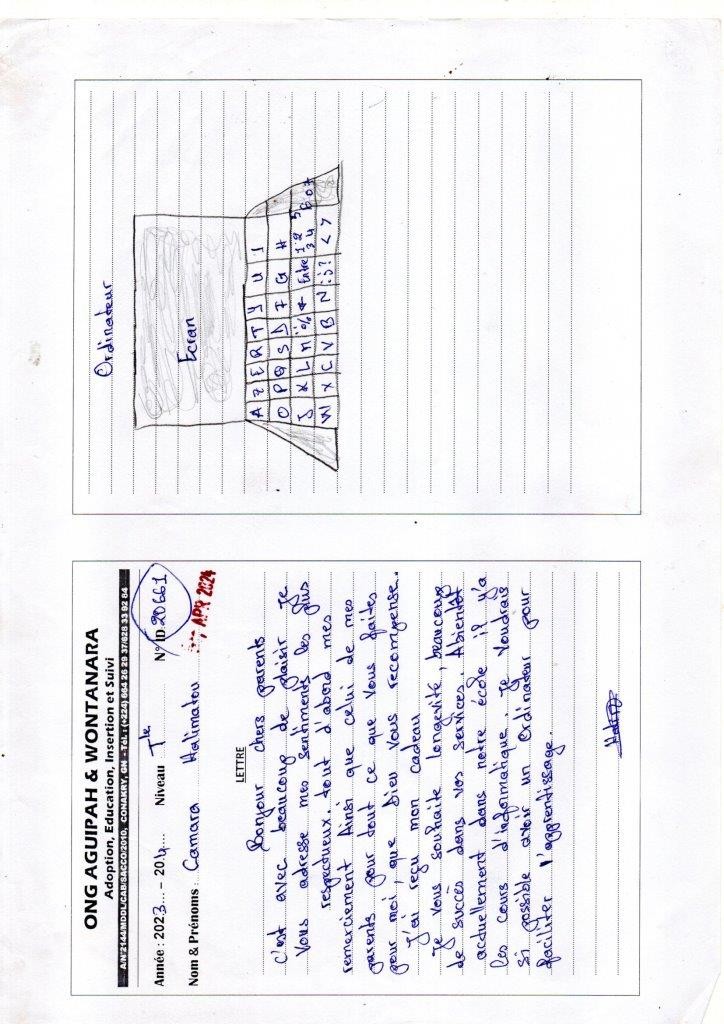 ONG AGUIPAH & WONTANARA
Adoption, Education, Insertion et Suivi
CONAKRY, GN - Tél. : (+224) 664 26 29 37/628 33 92 64
Année : 2023... - 20 Niveau Tle N° ID 20661
APR 2024
Nom & Prénoms : Camara Halimatou
LETTRE
Bonjour chers parents
C'est avec beaucoup de plaisir Je
Vous adresse mes sentiments les plus
respectueux. tout d'abord mes
remerciement Ainsi que celui de mes
parents pour tout ce que Vous faites
pour moi, que Dieu Vous recompense..
J'ai reçu mon Cadeau
Je vous souhaite longevité, beaucoup
de succès dans vos services. Abientot
actuellement dans notre école il y'a
les cours d'informatique. Je Voudrais
si possible avoir un Ordinateur pour
faciliter l'apprentissage.
Ordinateur
Ecran
A Z E R T Y U I
O P Q S D F G H
J K L M % & Entre 1 2 3 4 5 6 0 7
W X C V B N ; : ? < >